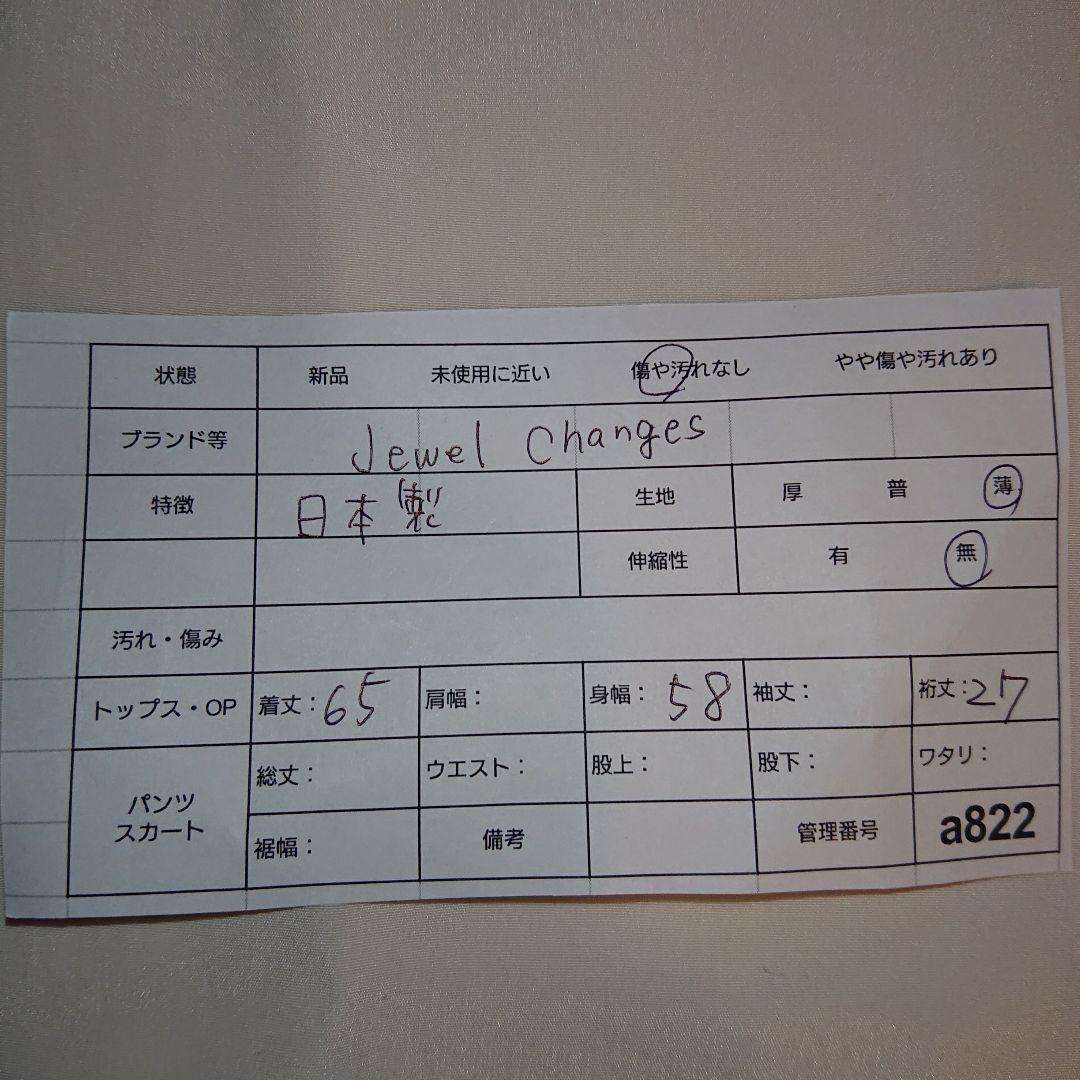 状態 新品 未使用に近い 傷や汚れなし やや傷や汚れあり
ブランド等 Jewel Changes
特徴 日本製 生地 厚 普 薄
伸縮性 有 無
汚れ・傷み
トップス・OP 着丈：65 肩幅： 身幅：58 袖丈： 裄丈：27
パンツ スカート
総丈： ウエスト： 股上： 股下： ワタリ：
裾幅： 備考 管理番号 a822